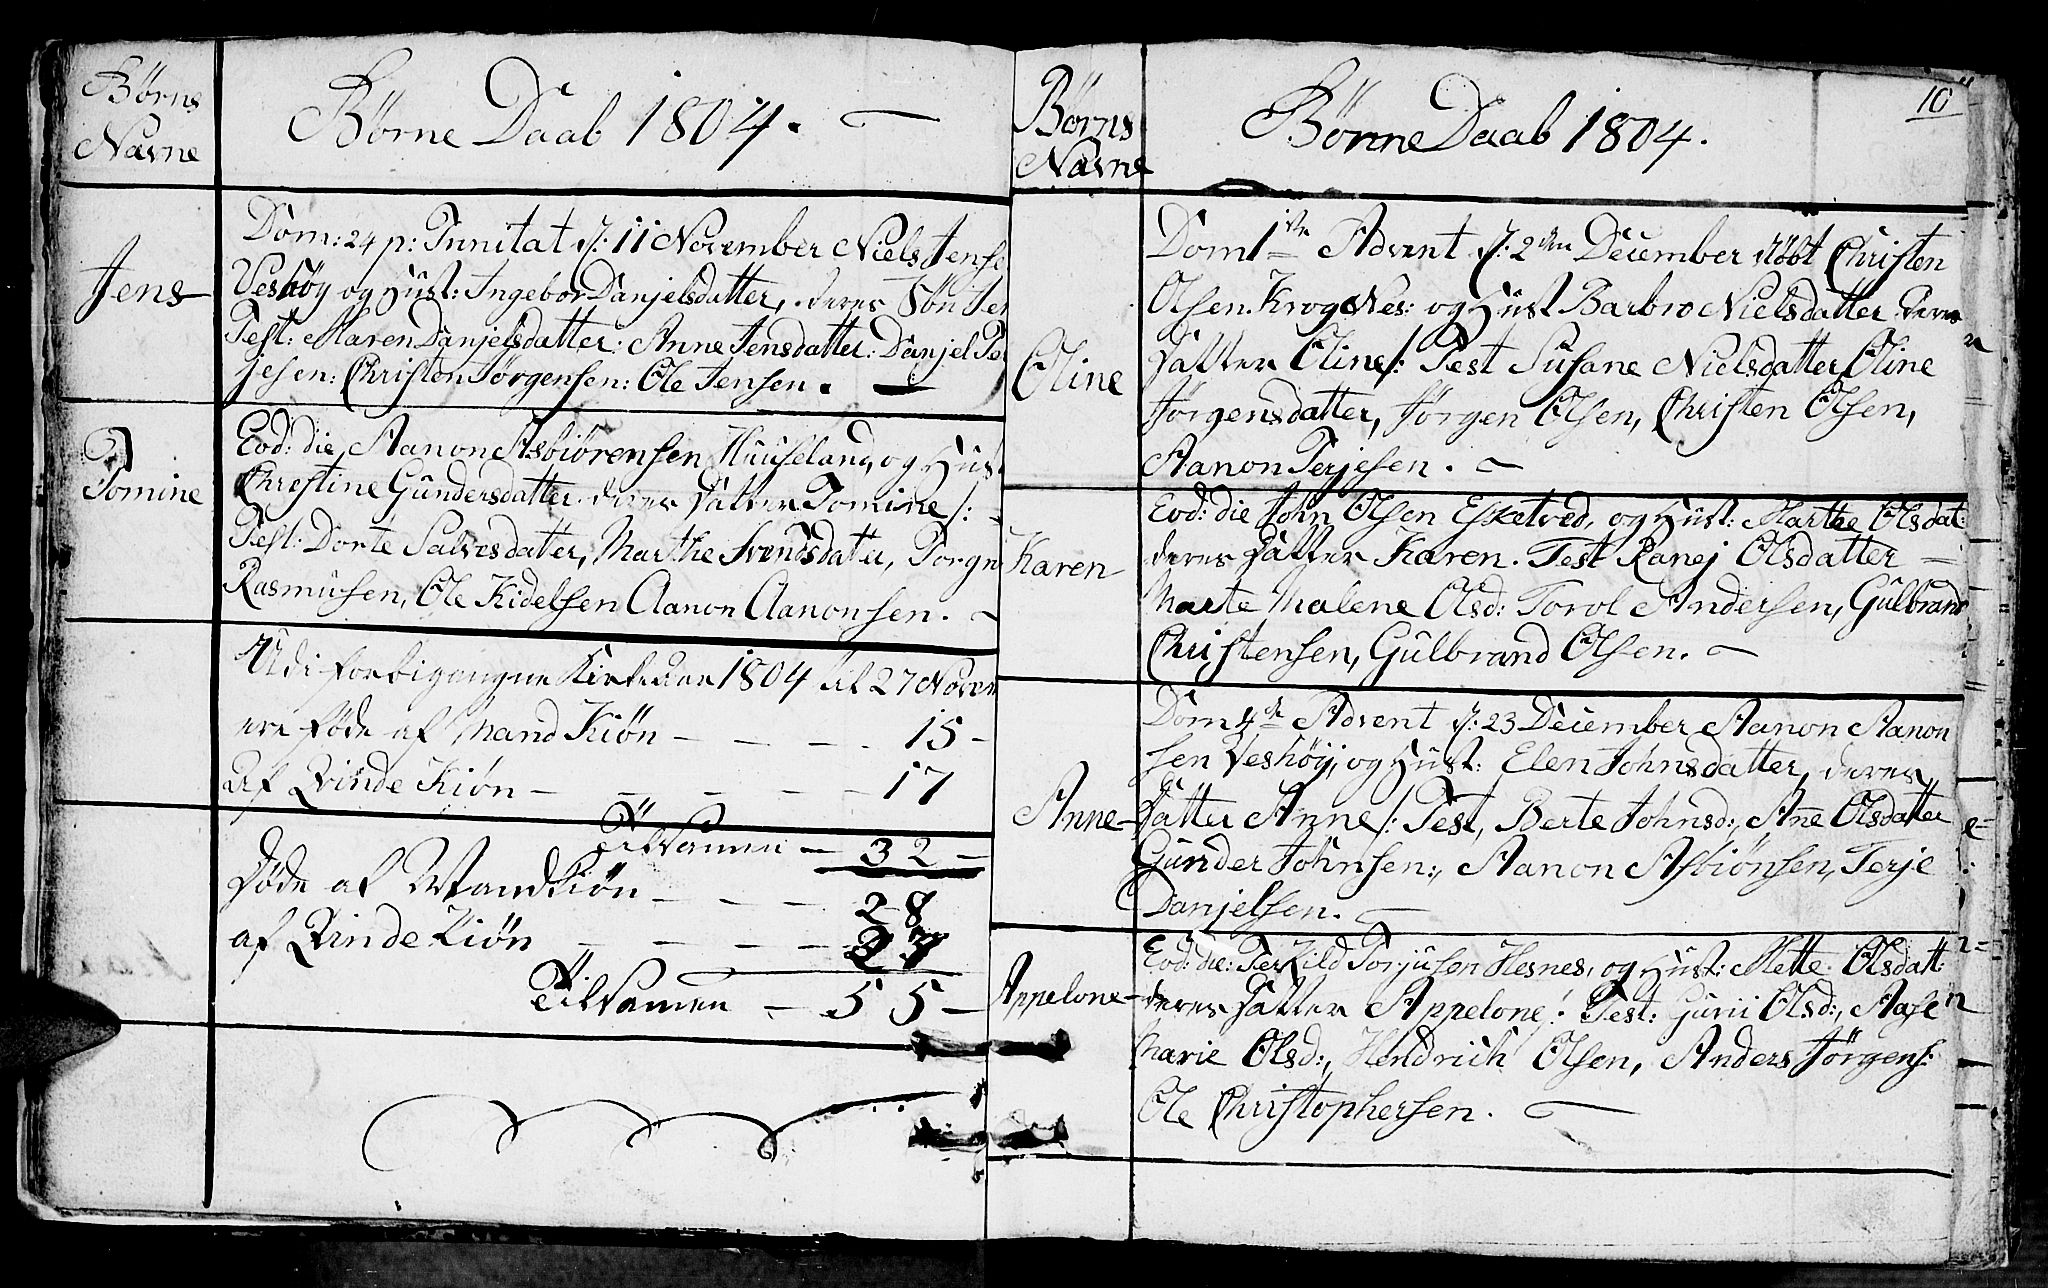 Børns
Navne
Børne Daab 1804.
Jens
Dom: 24 p: Trinitat /: 11 November Niels Jense
Veshöÿ og Hust: Ingebor Danjelsdatter, deres Søn Jen
Test: Maren Danjelsdatter: Anne Jensdatter: Danjel To
jesen: Christen Jørgensen: Ole Jensen.
Tomine
Eod: die Aanon Asbiörensen Huuseland, og Hust
Christine Gundersdatter deres Datter Tomine /:
Test: Dorte Salvesdater, Marthe Svendsdater, Torgn
Rasmusen, Ole Kidelsen Aanon Aanonsen.
Udi forbigangne Kirke Aar 1804 til 27 Novem
ere føde af Mand Kiön - - - 15 -
Af Qvinde Kiön - - - - - 17
Tilsamen - 32 -
Døde af Mandkiön - - - 28
af Qvinde Kiön - - - - 27
Tilsamen - 55 -
Børns
Navne
Børne Daab 1804.
10
Oline
Dom 1ste Advent /: 2den December døbt Christen
Olsen Krognes: og Hust Barbro Nielsdatter deres
Datter Oline /: Test Susane Nielsdatter, Oline
Jørgensdatter, Jørgen Olsen, Christen Olsen,
Aanon Terjesen.
Karen
Eod: die John Olsen Esketved, og Hust: Marthe Olsdat:
deres Datter Karen. Test Ranej Olsdatter
Marte Malene Olsd: Torol Andersen, Gülbrand
Christensen, Gülbrand Olsen.
Anne
Dom 4de Advent /: 23 December Aanon Aanon
sen Veshöÿ, og Hust: Elen Johnsdatter, deres
Datter Anne /: Test, Berte Johnsd:, Ane Olsdatter
Gunder Johnsen:, Aanon Asbiönsen, Terje
Danjelsen.
Appelone
Eod: die: Terkild Torjusen Hesnes, og Hust: Mette Olsdatt:
deres Datter Appelone: Test: Gurii Olsd:, Aase
Marie Olsd:, Hendrich Olsen, Anders Jørgens:
Ole Christophersen.